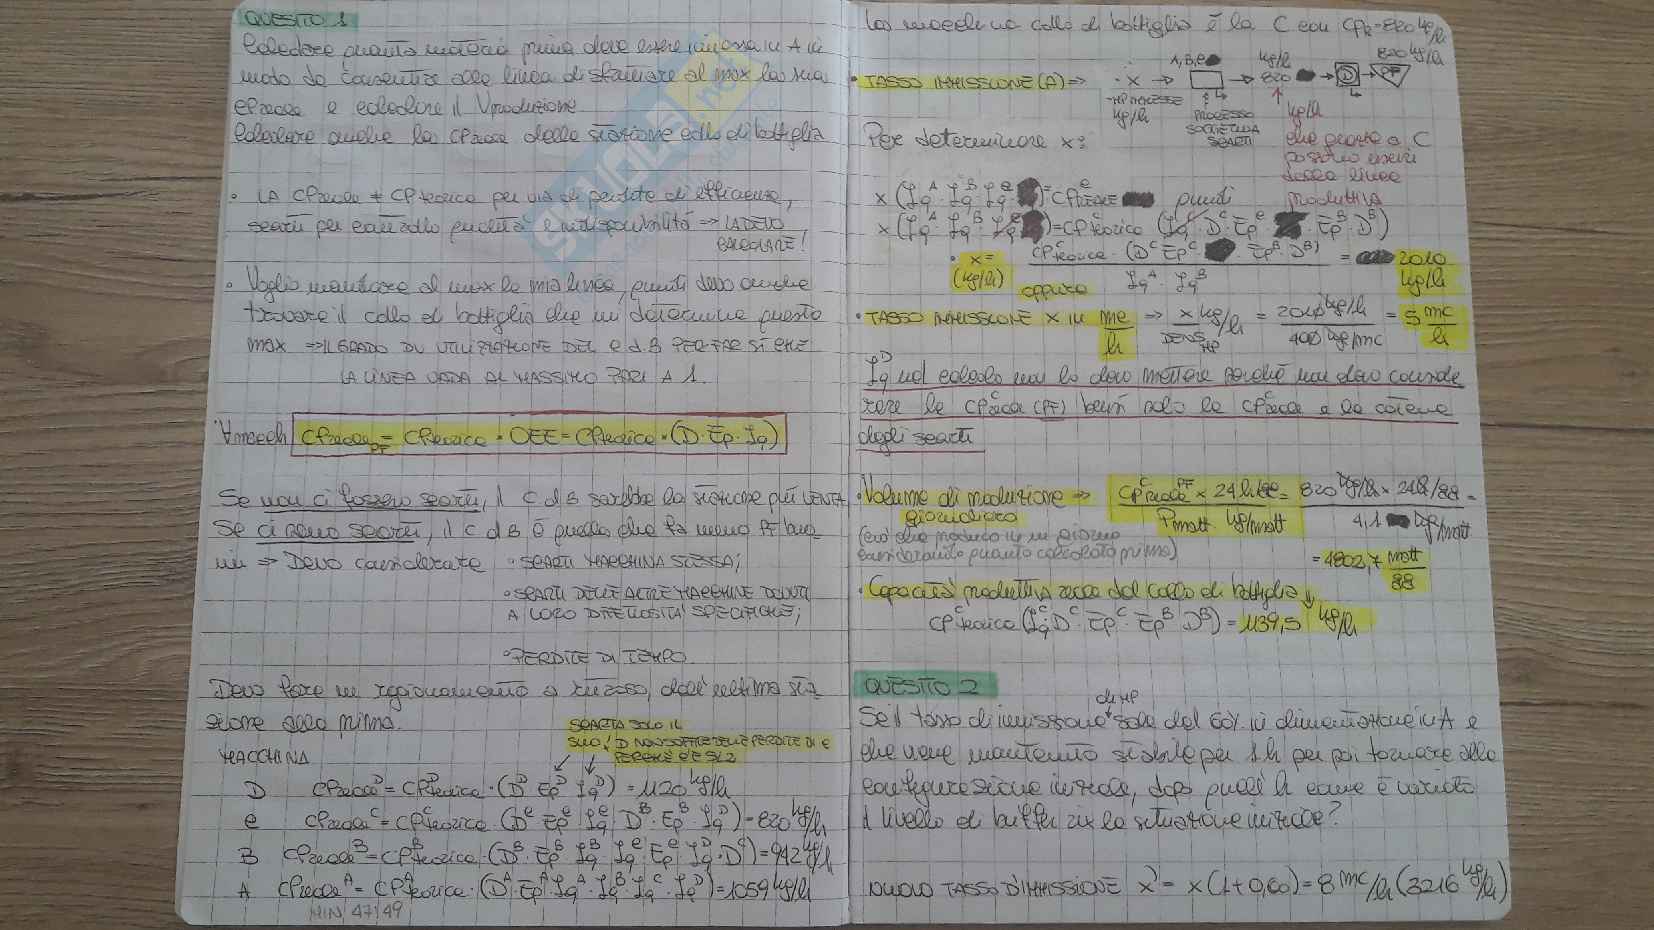 QUESITO 1
Calcolare quanta materia prima deve essere immessa in A in
modo da consentire alla linea di sfruttare al max la sua
CPreale e calcolare il Vproduzione
Calcolare anche la CPreale della stazione collo di bottiglia
• LA CPreale ≠ CPteorica per via di perdite di efficienza,
scarti per controllo qualità e indisponibilità → LA DEVO
CALCOLARE!
• Voglio mandare al max la mia linea, quindi devo anche
trovare il collo di bottiglia che mi determina questo
max ⇒ IL GRADO DI UTILIZZAZIONE DEL C d. B PER FAR SÌ CHE
LA LINEA VADA AL MASSIMO PARI A 1.
∀ macch CPreale PF = CPteorica · OEE = CPteorica · (D · Ep · Iq)
Se non ci fossero scarti, il C d B sarebbe la stazione più LENTA
Se ci sono scarti, il C d B è quello che fa meno PF buo
ni ⇒ Devo considerare • SCARTI MACCHINA STESSA;
• SCARTI DELLE ALTRE MACCHINE DOVUTI
A LORO DIFETTOSITÀ SPECIFICHE;
• PERDITE DI TEMPO
Devo fare un ragionamento a ritroso, dall'ultima sta
zione alla prima.
SCARTA SOLO IL
SUO! D NON SOFFRE DELLE PERDITE DI C
PERCHÉ
MACCHINA
D CPreale^D = CPteorica^D · (D^D Ep^D Iq^D) = 1120 kg/h
C CPreale^C = CPteorica^C · (D^C Ep^C Iq^C D^B · Ep^B Iq^D) = 820 kg/h
B CPreale^B = CPteorica^B · (D^B · Ep^B Iq^B Iq^C Ep^C Iq^D · D^C) = 942 kg/h
A CPreale^A = CPteorica^A · (D^A · Ep^A Iq^A · Iq^B Iq^C Iq^D) = 1059 kg/h
MIN 47:49
La macchina collo di bottiglia è la C con CPR = 820 kg/h
• TASSO IMMISSIONE (A) ⇒ · x → A, B, C → kg/h 820 → D → PF 820 kg/h
MP IMMESSE kg/h
PROCESSO
SOCIETÀ IN A
SCARTI
kg/h
che grazie a C
possono uscire
dalla linea
produttiva
Per determinare x:
x (Iq^A Iq^B Iq^C) = CPreale^C quindi
x (Iq^A · Iq^B Iq^C) = CPteorica^C (Iq^C · D^C · Ep^C · Ep^B · D^B)
• x = (kg/h) CPteorica^C · (D^C Ep^C · Ep^B · D^B) / Iq^A · Iq^B = 2010 kg/h
oppure
• TASSO IMMISSIONE X in mc/h ⇒ x kg/h / DENS MP = 2010 kg/h / 400 kg/mc = 5 mc/h
Iq^D nel calcolo non lo devo mettere perché non devo conside
rare la CPreale^C (PF) bensì solo la CPreale^C e la catena
degli scarti
• Volume di produzione ⇒ CPreale^C PF × 24 h/gg / Pmatt kg/matt = 820 kg/h × 24h/gg / 4,1 kg/matt =
giornaliera
(ciò che produco in un giorno
considerando quanto calcolato prima)
= 4802,7 matt/gg
• Capacità produttiva reale del collo di bottiglia ↓
CPteorica^C (Iq^C D^C · Ep^C · Ep^B D^B) = 1139,5 kg/h
QUESITO 2
di MP
Se il tasso di immissione sale del 60% in alimentazione in A e
che viene mantenuto stabile per 1h per poi tornare alla
configurazione iniziale, dopo quell'h come è variato
il livello di buffer vs la situazione iniziale?
NUOVO TASSO D'IMMISSIONE x' = x (1 + 0,60) = 8 mc/h (3216 kg/h)